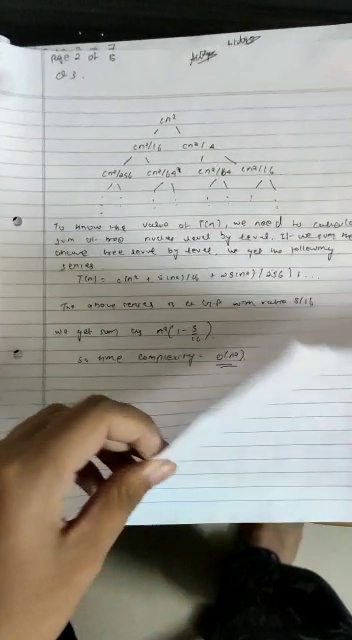 page 2 of 5
Q3.
cn²
cn²/16 cn²/4
cn²/256 cn²/64 cn²/64 cn²/16
To know the value of T(n), we need to calculate
sum of tree nodes level by level. If we sum the
above tree level by level, we get the following
series
T(n) = c(n² + 5(n²)/16 + 25(n²)/256) + ....
The above series is a G.P with ratio 5/16
we get sum as n²(1 - 5/16)
So time complexity = O(n²)